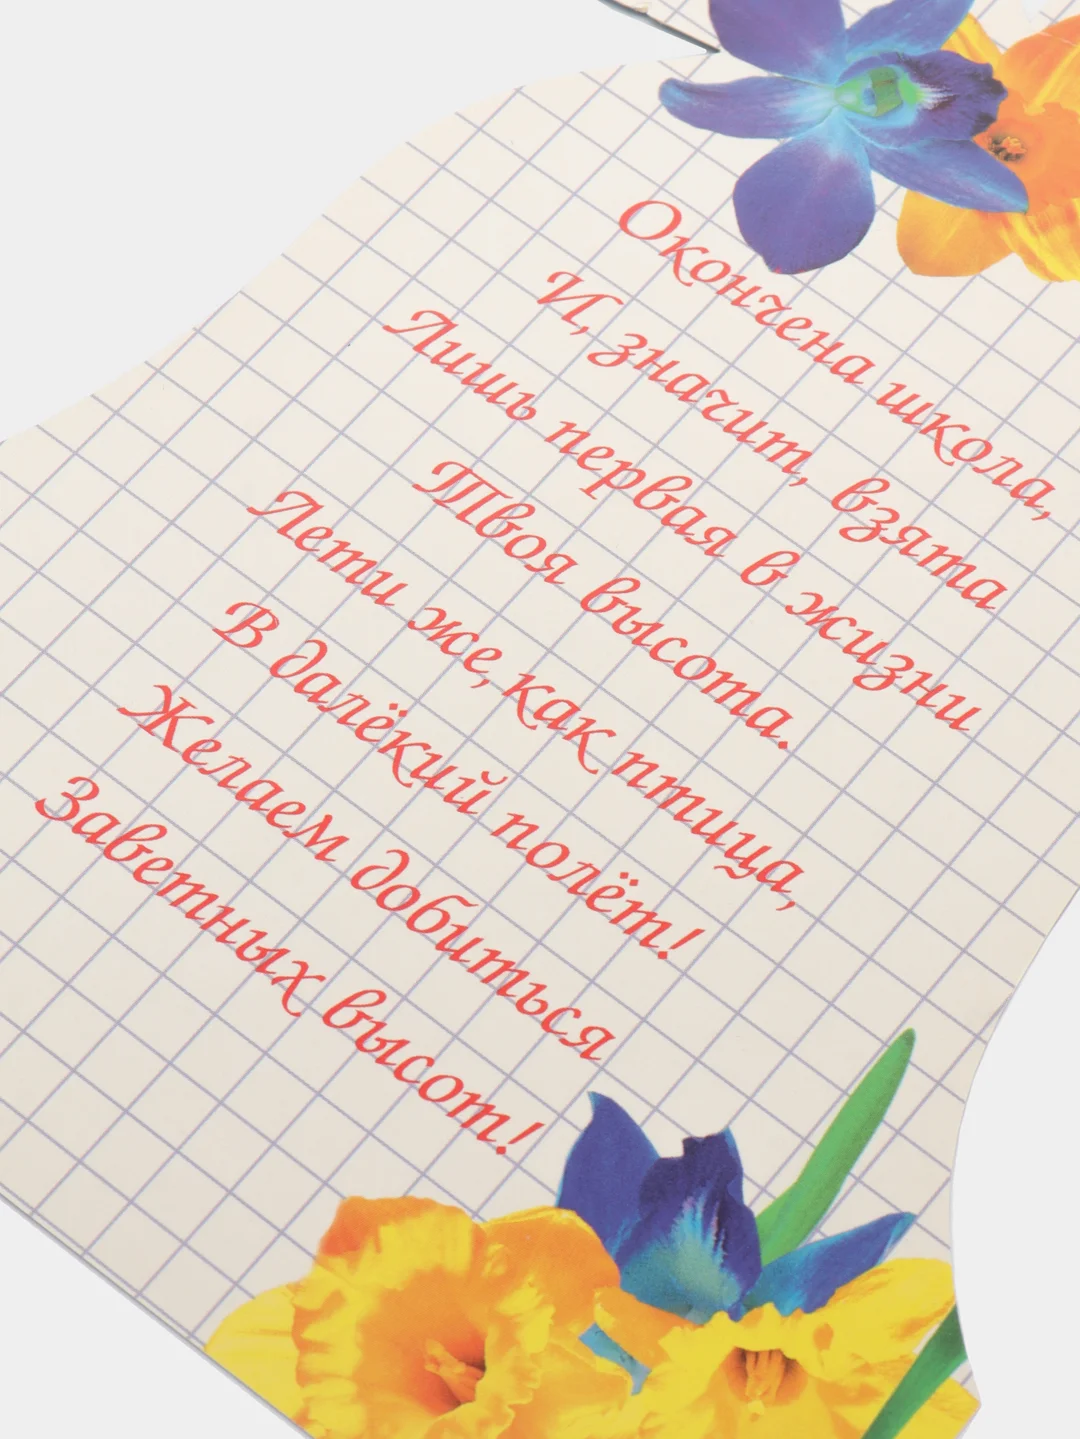 Окончена школа,
И, значит, взята
Лишь первая в жизни
Твоя высота.
Лети же, как птица,
В далёкий полёт!
Желаем добиться
Заветных высот!